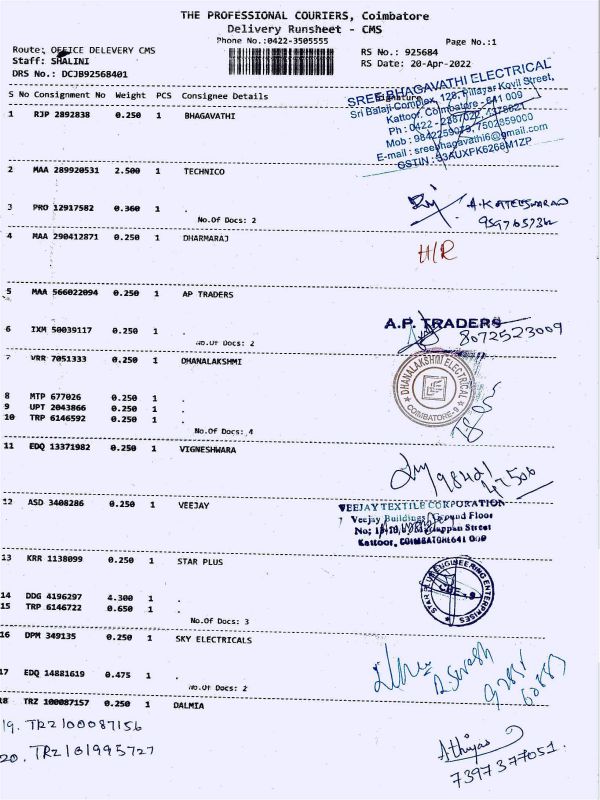 THE PROFESSIONAL COURIERS, Coimbatore
Delivery Runsheet - CMS
Phone No.:0422-3505555
Page No.:1
Route: OFFICE DELEVERY CMS
RS No.: 925684
Staff: SHALINI
RS Date: 20-Apr-2022
DRS No.: DCJB92568401
S No Consignment No Weight PCS Consignee Details Signature
SREE BHAGAVATHI ELECTRICAL
Sri Balaji Complex, 128, Pillayar Kovil Street,
Kattoor, Coimbatore - 641 009
Ph : 0422 -
Mob : 7502359000
E-mail : sreebhagavathi6@gmail.com
GSTIN : 33AUXFK6268M1ZP
1 RJP 2892838 0.250 1 BHAGAVATHI
2 MAA 289920531 2.500 1 TECHNICO
3 PRO 12917582 0.360 1 .
No.Of Docs: 2
4 MAA 290412871 0.250 1 DHARMARAJ
H/R
5 MAA 566022094 0.250 1 AP TRADERS
A.P. TRADERS
8072523009
6 IXM 50039117 0.250 1 .
No.Of Docs: 2
7 VRR 7051333 0.250 1 DHANALAKSHMI
DHANALAKSHMI ELECTRICAL
COIMBATORE-9
8 MTP 677026 0.250 1 .
9 UPT 2043866 0.250 1 .
10 TRP 6146592 0.250 1 .
No.Of Docs: 4
11 EDQ 13371982 0.250 1 VIGNESHWARA
98421
47506
12 ASD 3408286 0.250 1 VEEJAY
VEEJAY TEXTILE CORPORATION
Veejay Buildings Ground Floor
Street
Kattoor, COIMBATORE 641 009
13 KRR 1138099 0.250 1 STAR PLUS
STAR PLUS ENGINEERING ENTERPRISES
CBE - 9
14 DDG 4196297 4.300 1 .
15 TRP 6146722 0.650 1 .
No.Of Docs: 3
16 DPM 349135 0.250 1 SKY ELECTRICALS
17 EDQ 14881619 0.475 1 .
No.Of Docs: 2
18 TRZ 100087157 0.250 1 DALMIA
19. TRZ 100087156
20. TRZ 101995727
7397377051.